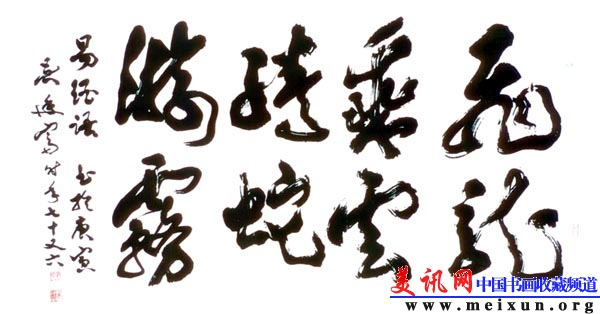 飛龍
乘云
騰蛇
游霧
易經語 书於庚寅
时年七十又六
美讯网 中国书画收藏频道
www.meixun.org